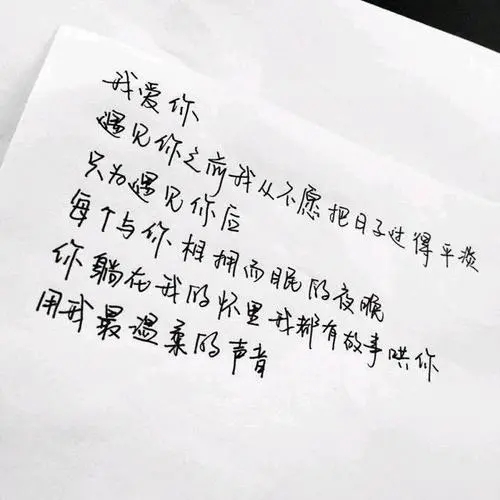 我爱你
遇见你之前我从不愿把日子过得平淡
只为遇见你后
每个与你相拥而眠的夜晚
你躺在我的怀里我都有故事哄你
用我最温柔的声音